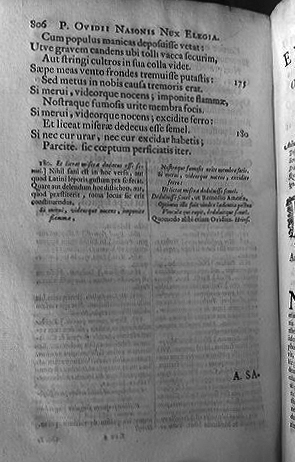 806 P. OVIDII NASONIS NUX ELEGIA.
Cum populus manicas deposuisse vetat:
Utve gravem candens ubi tolli vacca securim,
Aut stringi cultros in sua colla videt.
Sæpe meas vento frondes tremuisse putastis: 175
Sed metus in nobis causa tremoris erat.
Si merui, videorque nocens; imponite flammæ,
Nostraque fumosis urite membra focis.
Si merui, videorque nocens; excidite ferro:
Et liceat miseræ dedecus esse semel. 180
Si nec cur urar, nec cur excidar habetis;
Parcite. sic cœptum perficiatis iter.
180. Et liceat miseræ dedecus esse
Nihil sani est in hoc versu, aut
quod Latini leporis gustum præ se ferat.
Quare aut delendum hoc distichon, aut,
quod præstiterit, totus locus sic erit
constituendus,
Si merui, videorque nocens, imponite
flammæ,
Nostraque fumosis urite membra focis.
Si merui, videorque nocens, excidite
ferro:
Et liceat miseræ
ut Bernensis
Quomodo alibi etiam Ovidius.
A. SA-